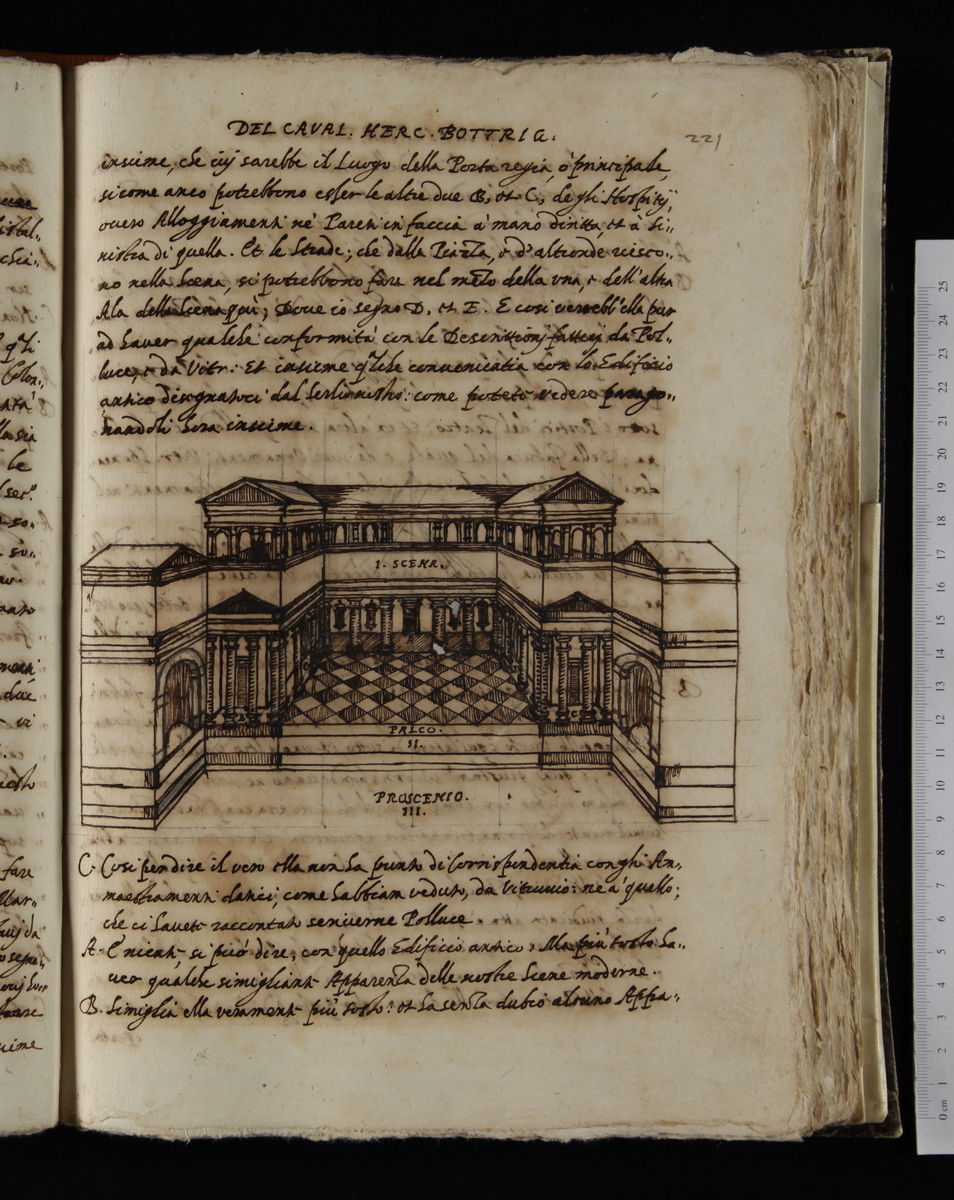 DEL CAVAL. HERC. BOTTRIG.
221
insieme, che iuj sarebbe il Luogo della Porta regia, ò principale,
sicome anco potrebbono esser le altre due B, et C, de gli Hospitij,
ouero Alloggiamenti nè Pareti in faccia à mano diritta, et à si,,
nistra di quella. Et le Strade; che dalla Piazza, ò d'altronde riesco,,
no nella scena, si potrebbono fare nel mezo della una, e dell'altra
Ala della scena quì; Doue io segno D. et E. E cosi verrebb'ella pur
ad hauer qualche conformità con le Descrittionj fatteci da Pol,,
luce, e da Vitr. Et insieme q.lche conuenientia con lo Edificio
antico disegnatoci dal Serlio nostro: come potete vedere parago,,
nandoli hora insieme.
I. SCENA.
PALCO.
II.
PROSCENIO.
III.
C. Cosi per dire il vero ella non ha punto di Corrispondentia con gli Am,,
maestramenti datici, come habbiam veduto, da Vitruuio: nè à quello;
che ci hauete raccontato scriuerne Polluce.
A. E niente si può dire, con quello Edificio antico: Ma più tosto ha,,
uer qualche simigliante Apparenza delle nostre Scene moderne.
B. Simiglia ella veramente più tosto: et ha senza dubio alcuno Appa,,